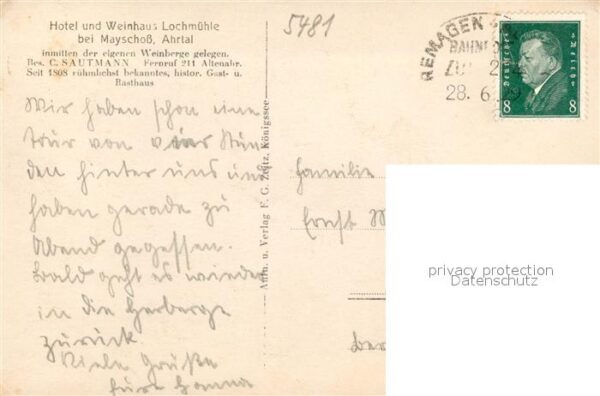 Hotel und Weinhaus Lochmühle
bei Mayschoß, Ahrtal
inmitten der eigenen Weinberge gelegen.
Bes. C. SAUTMANN Fernruf 241 Altenahr.
Seit 1808 rühmlichst bekanntes, histor. Gast- u.
Rasthaus
5481
REMAGEN
BAHNHOF
28. 6.
Deutsches Reich
8 8
Wir haben schon eine
Tour von vier Stun
den hinter uns und
haben gerade zu
Abend gegessen.
Bald geht es wieder
in die Herberge
zurück.
Viele Grüße
Eure Hanna
Aufn. u. Verlag F. G. Zeitz, Königssee
Familie
Ernst
privacy protection
Datenschutz